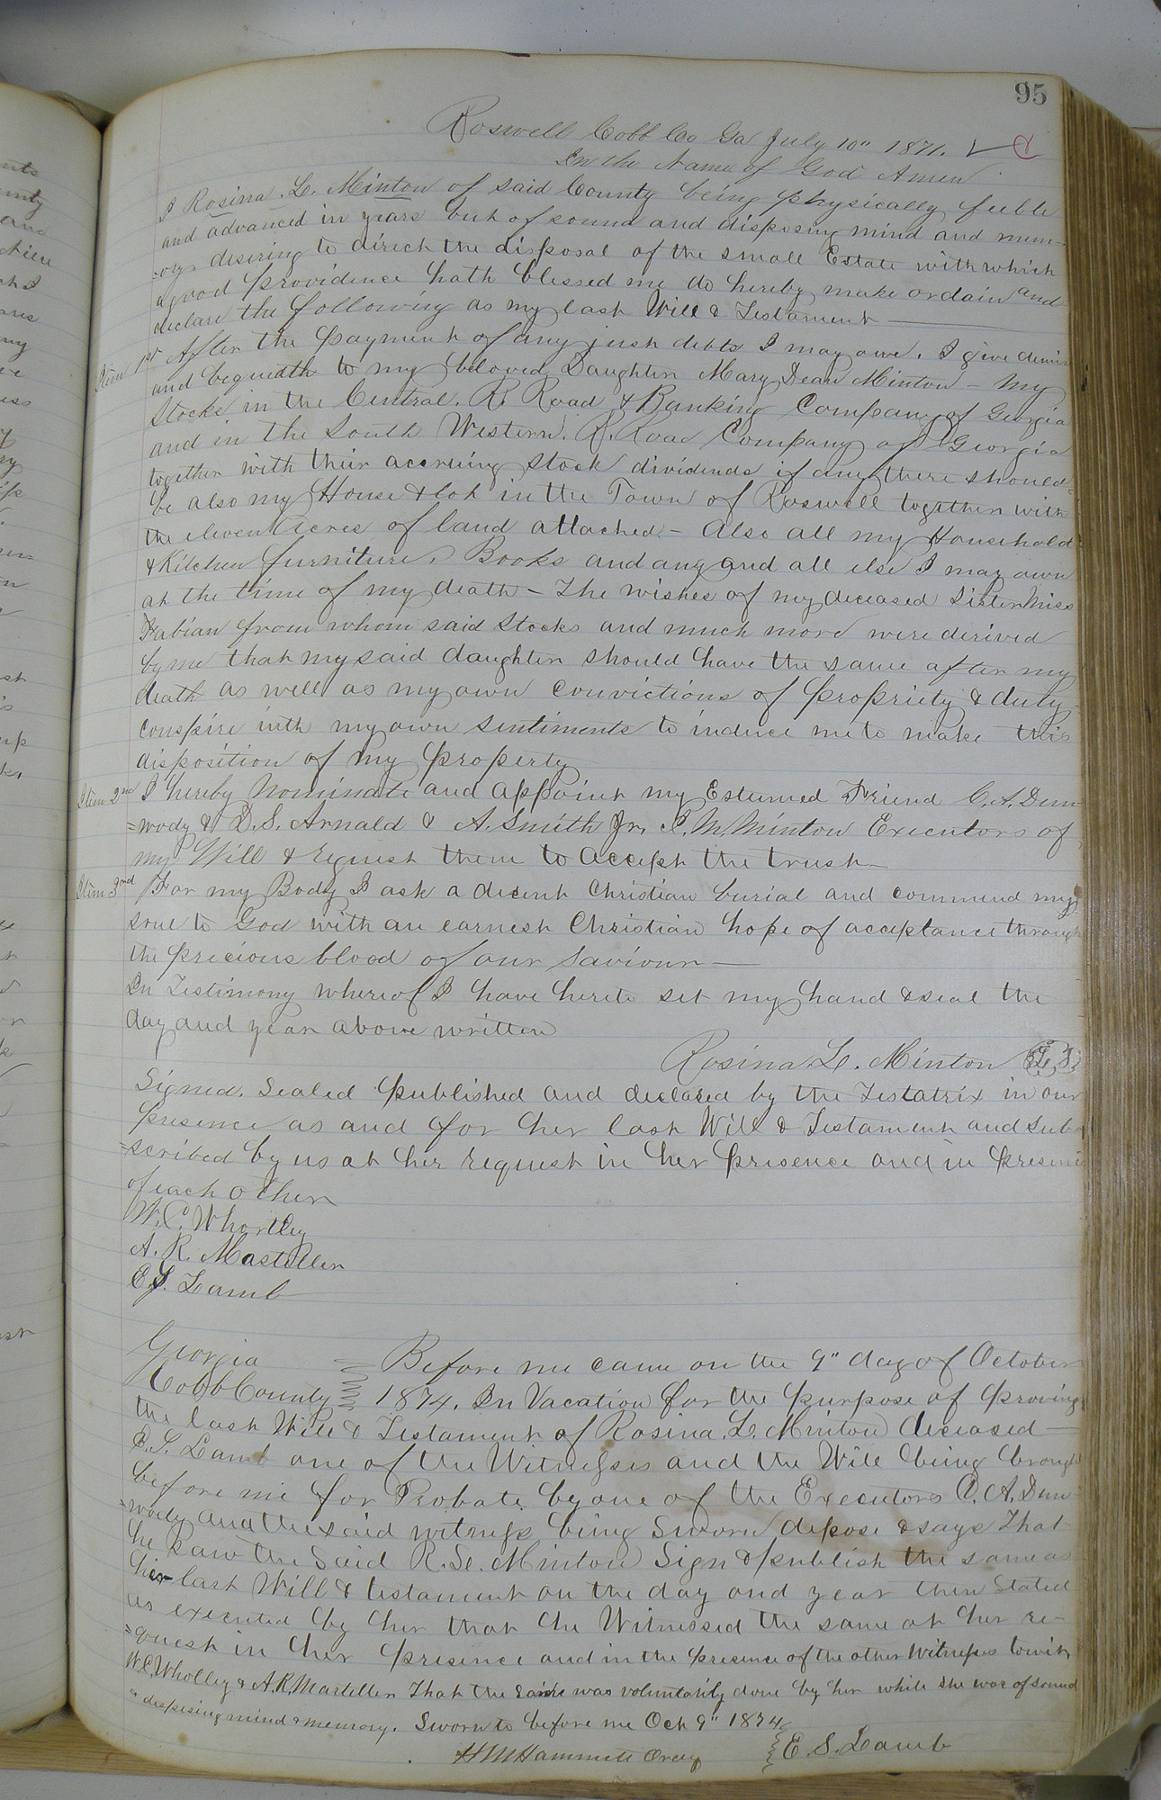 95
Roswell Cobb Co Ga July 10" 1871.
In the Name of God Amen
I Rosina. L. Minton of said County being physically feeble
and advanced in years but of sound and disposing mind and mem-
-ory desiring to direct the disposal of the small Estate with which
a good providence hath blessed me do hereby make ordain and
declare the following as my last Will & Testament
Item 1st After the payment of any just debts I may owe. I give devise
and bequeath to my beloved Daughter Mary Dean Minton - My
Stocks in the Central. R. Road & Banking Company of Georgia
and in the South Western. R. Road Company of Georgia
together with their accruing stock dividends if any there should
be also my House & lot in the Town of Roswell together with
the eleven acres of land attached - Also all my Household
& Kitchen furniture, Books and any and all else I may own
at the time of my death - The wishes of my deceased Sister Miss
Fabian from whom said Stocks and much more were derived
by me that my said daughter should have the same after my
death as well as my own convictions of propriety & duty
conspire with my own sentiments to induce me to make this
disposition of my property
Item 2nd I hereby Nominate and appoint my Esteemed Friend C. A. Dun-
=wody & D. S. Arnald & A. Smith Jr. J. M. Minton Executors of
my Will & request them to accept the trust
Item 3rd For my Body I ask a decent Christian burial and commend my
soul to God with an earnest Christian hope of acceptance through
the precious blood of our Saviour
In Testimony whereof I have hereto set my hand & seal the
day and year above written
Rosina. L. Minton L. S.
Signed. Sealed published and declared by the Testatrix in our
presence as and for her last Will & Testament and sub-
=scribed by us at her request in her presence and in presence
of each other
W. C. Whortley
A. R. Mastellen
E. S. Lamb
Georgia
Cobb County
Before me came on the 9" day of October
1874. In Vacation for the purpose of proving
the last Will & Testament of Rosina. L. Minton deceased
E. S. Lamb one of the Witnesses and the Will being brought
before me for Probate by one of the Executors C. A. Dun-
=wody and the said witness being sworn depose & says That
he saw the said R. L. Minton Sign & publish the same as
her last Will & testament on the day and year then Stated
as executed by her that he Witnessed the same at her re-
=quest in her presence and in the presence of the other Witnesses towit,
W. C. Wholley & A. R. Martellen That the same was voluntarily done by her while she was of sound
& disposing mind & memory. Sworn to before me Oct 9" 1874
H M Hammett Ordy
E. S. Lamb